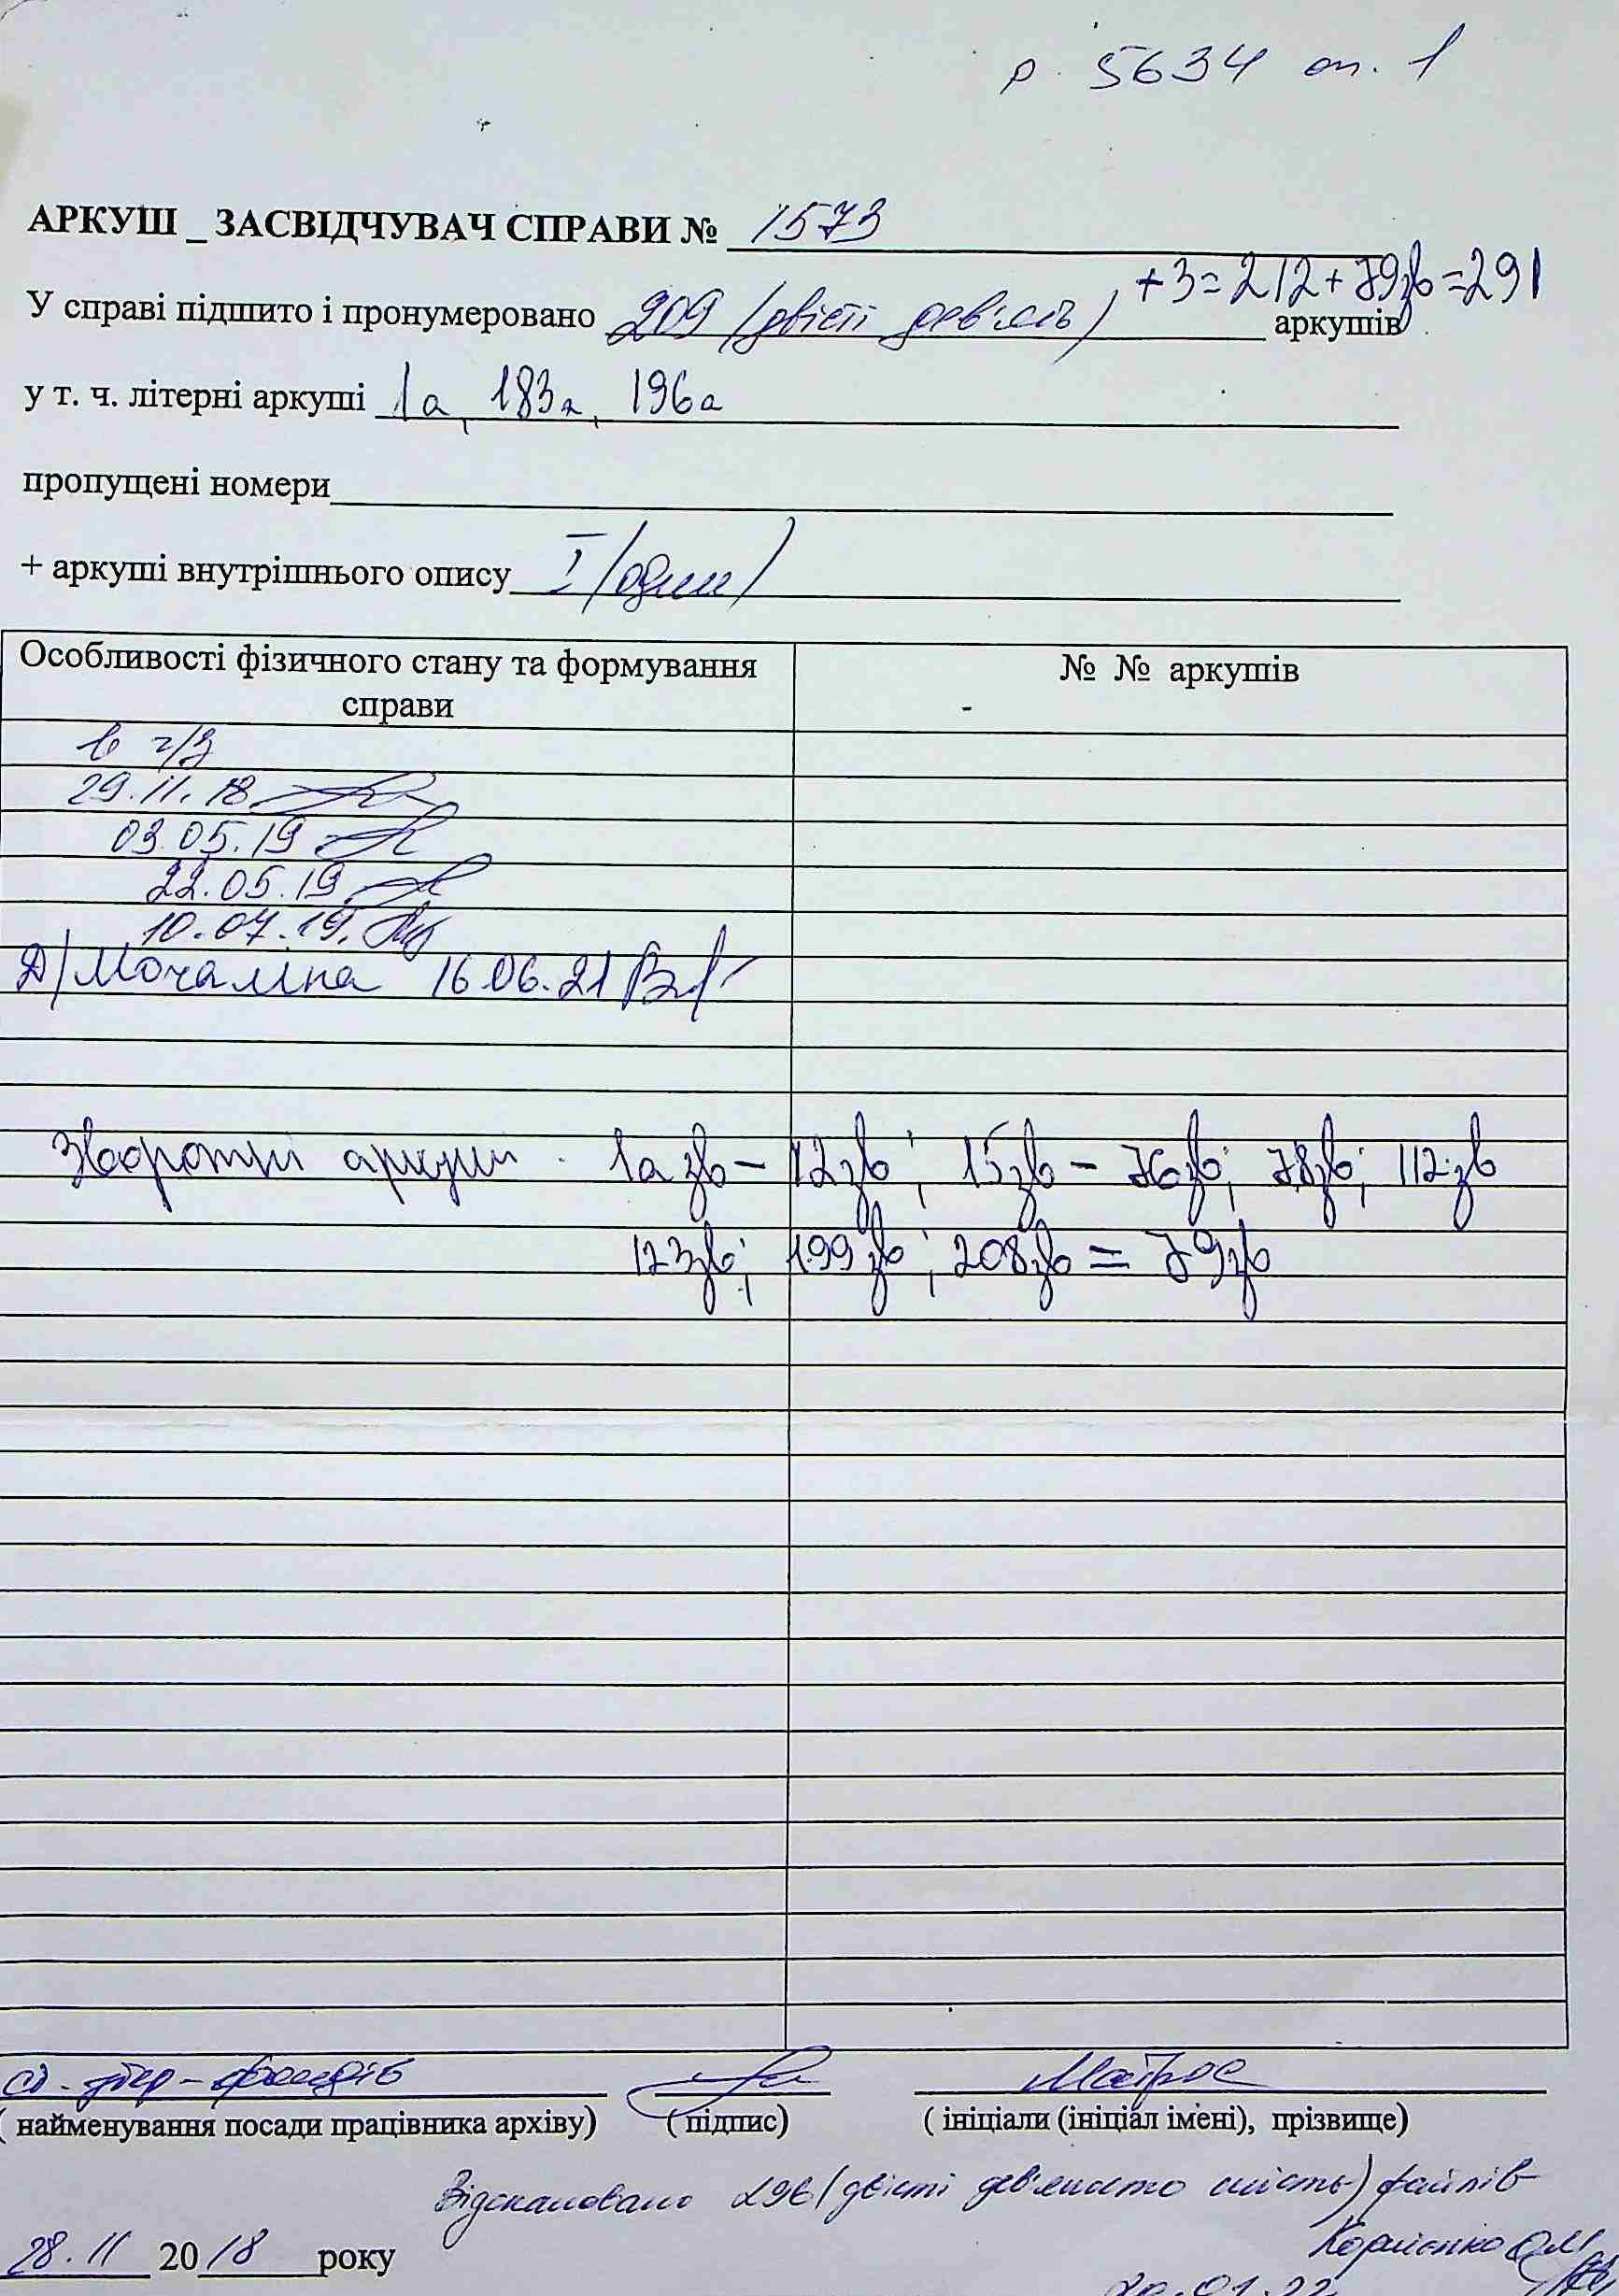 р. 5634 оп. 1
АРКУШ _ ЗАСВІДЧУВАЧ СПРАВИ № 1573
+3=212+79зв=291
У справі підшито і пронумеровано 209 (двісті дев'ять) аркушів
у т. ч. літерні аркуші 1а, 183а, 196а
пропущені номери
+ аркуші внутрішнього опису I (один)
Особливості фізичного стану та формування справи
№ № аркушів
в ч/з
29.11.18
03.05.19
22.05.19
10.07.19.
Д/Мочаліна 16.06.21
Зворотні аркуші 1а зв – 12зв; 15зв – 76зв; 78зв; 112зв
123зв; 199зв; 208зв = 79зв
Матрос
( найменування посади працівника архіву) ( підпис) ( ініціали (ініціал імені), прізвище)
Відскановано 296 (двісті дев'яносто шість) файлів
Корнієнко О.М.
28.11 2018 року
20.01.22